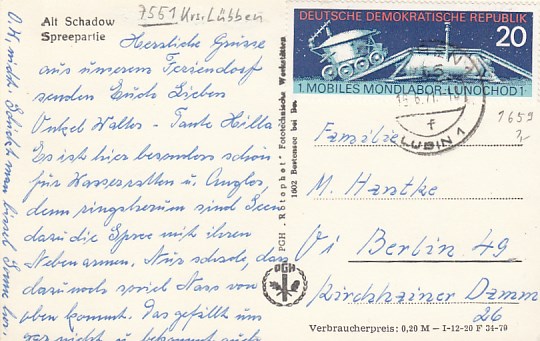 7551 Krs. Lübben
Alt Schadow
Spreepartie
Herzliche Grüsse
aus unserem Feriendorf
senden Euch Lieben
Onkel Walter - Tante Hilla.
Es ist hier besonders schön
für Wasserratten u. Angler,
denn ringsherum sind Seen
dazu die Spree mit ihren
Nebenarmen. Nur schade, das
dazu noch soviel Nass von
oben kommt. Das gefällt uns
gar nicht u. bekommt auch
PGH „Rotophot" Fototechnische Werkstätten
1602 Bestensee bei Bln.
PGH
DEUTSCHE DEMOKRATISCHE REPUBLIK
20
1. MOBILES MONDLABOR-LUNOCHOD 1
f
LÜBBEN 1
1659
Familie
M. Hantke
Berlin 49
Kirchhainer Damm
26
Verbraucherpreis: 0,20 M – I-12-20 F 34-70